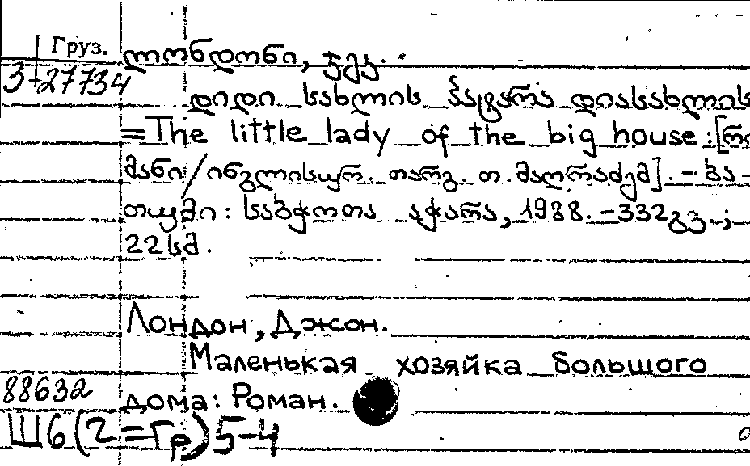 Груз.
3-27734
ლონდონი, ჯეკ.
დიდი სახლის პატარა დიასახლისი
=The little lady of the big house:[რო
მანი/ინგლისურ. თარგ. თ.მაღრაძემ]. - ბა-
თუმი: საბჭოთა აჭარა, 1988. -332გვ.;
22სმ.
Лондон, Джон.
Маленькая хозяйка большого
дома: Роман.
88632
Ш6(2=Гр)5-4